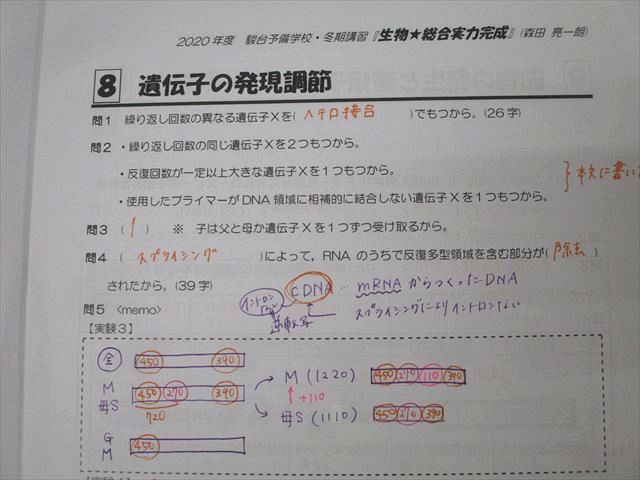 2020年度 駿台予備学校・冬期講習『生物★総合実力完成』(森田 亮一朗)
8 遺伝子の発現調節
問1 繰り返し回数の異なる遺伝子Xを( ヘテロ接合 )でもつから。(26字)
問2 ・繰り返し回数の同じ遺伝子Xを2つもつから。
・反復回数が一定以上大きな遺伝子Xを1つもつから。
} 本文に書い
・使用したプライマーがDNA領域に相補的に結合しない遺伝子Xを1つもつから。
問3 ( 1 ) ※ 子は父と母か遺伝子Xを1つずつ受け取るから。
問4 ( スプライシング )によって，RNAのうちで反復多型領域を含む部分が( 除去 )
されたから。(39字)
イントロン
cDNA … mRNAからつくったDNA
逆転写
スプライシングによりイントロンない
問5 <memo>
【実験3】
全 450 390
M 母S 450 270 390
720
M (1220) 450 270 110 390
↑+110
母S (1110) 450 270 390
G M 450